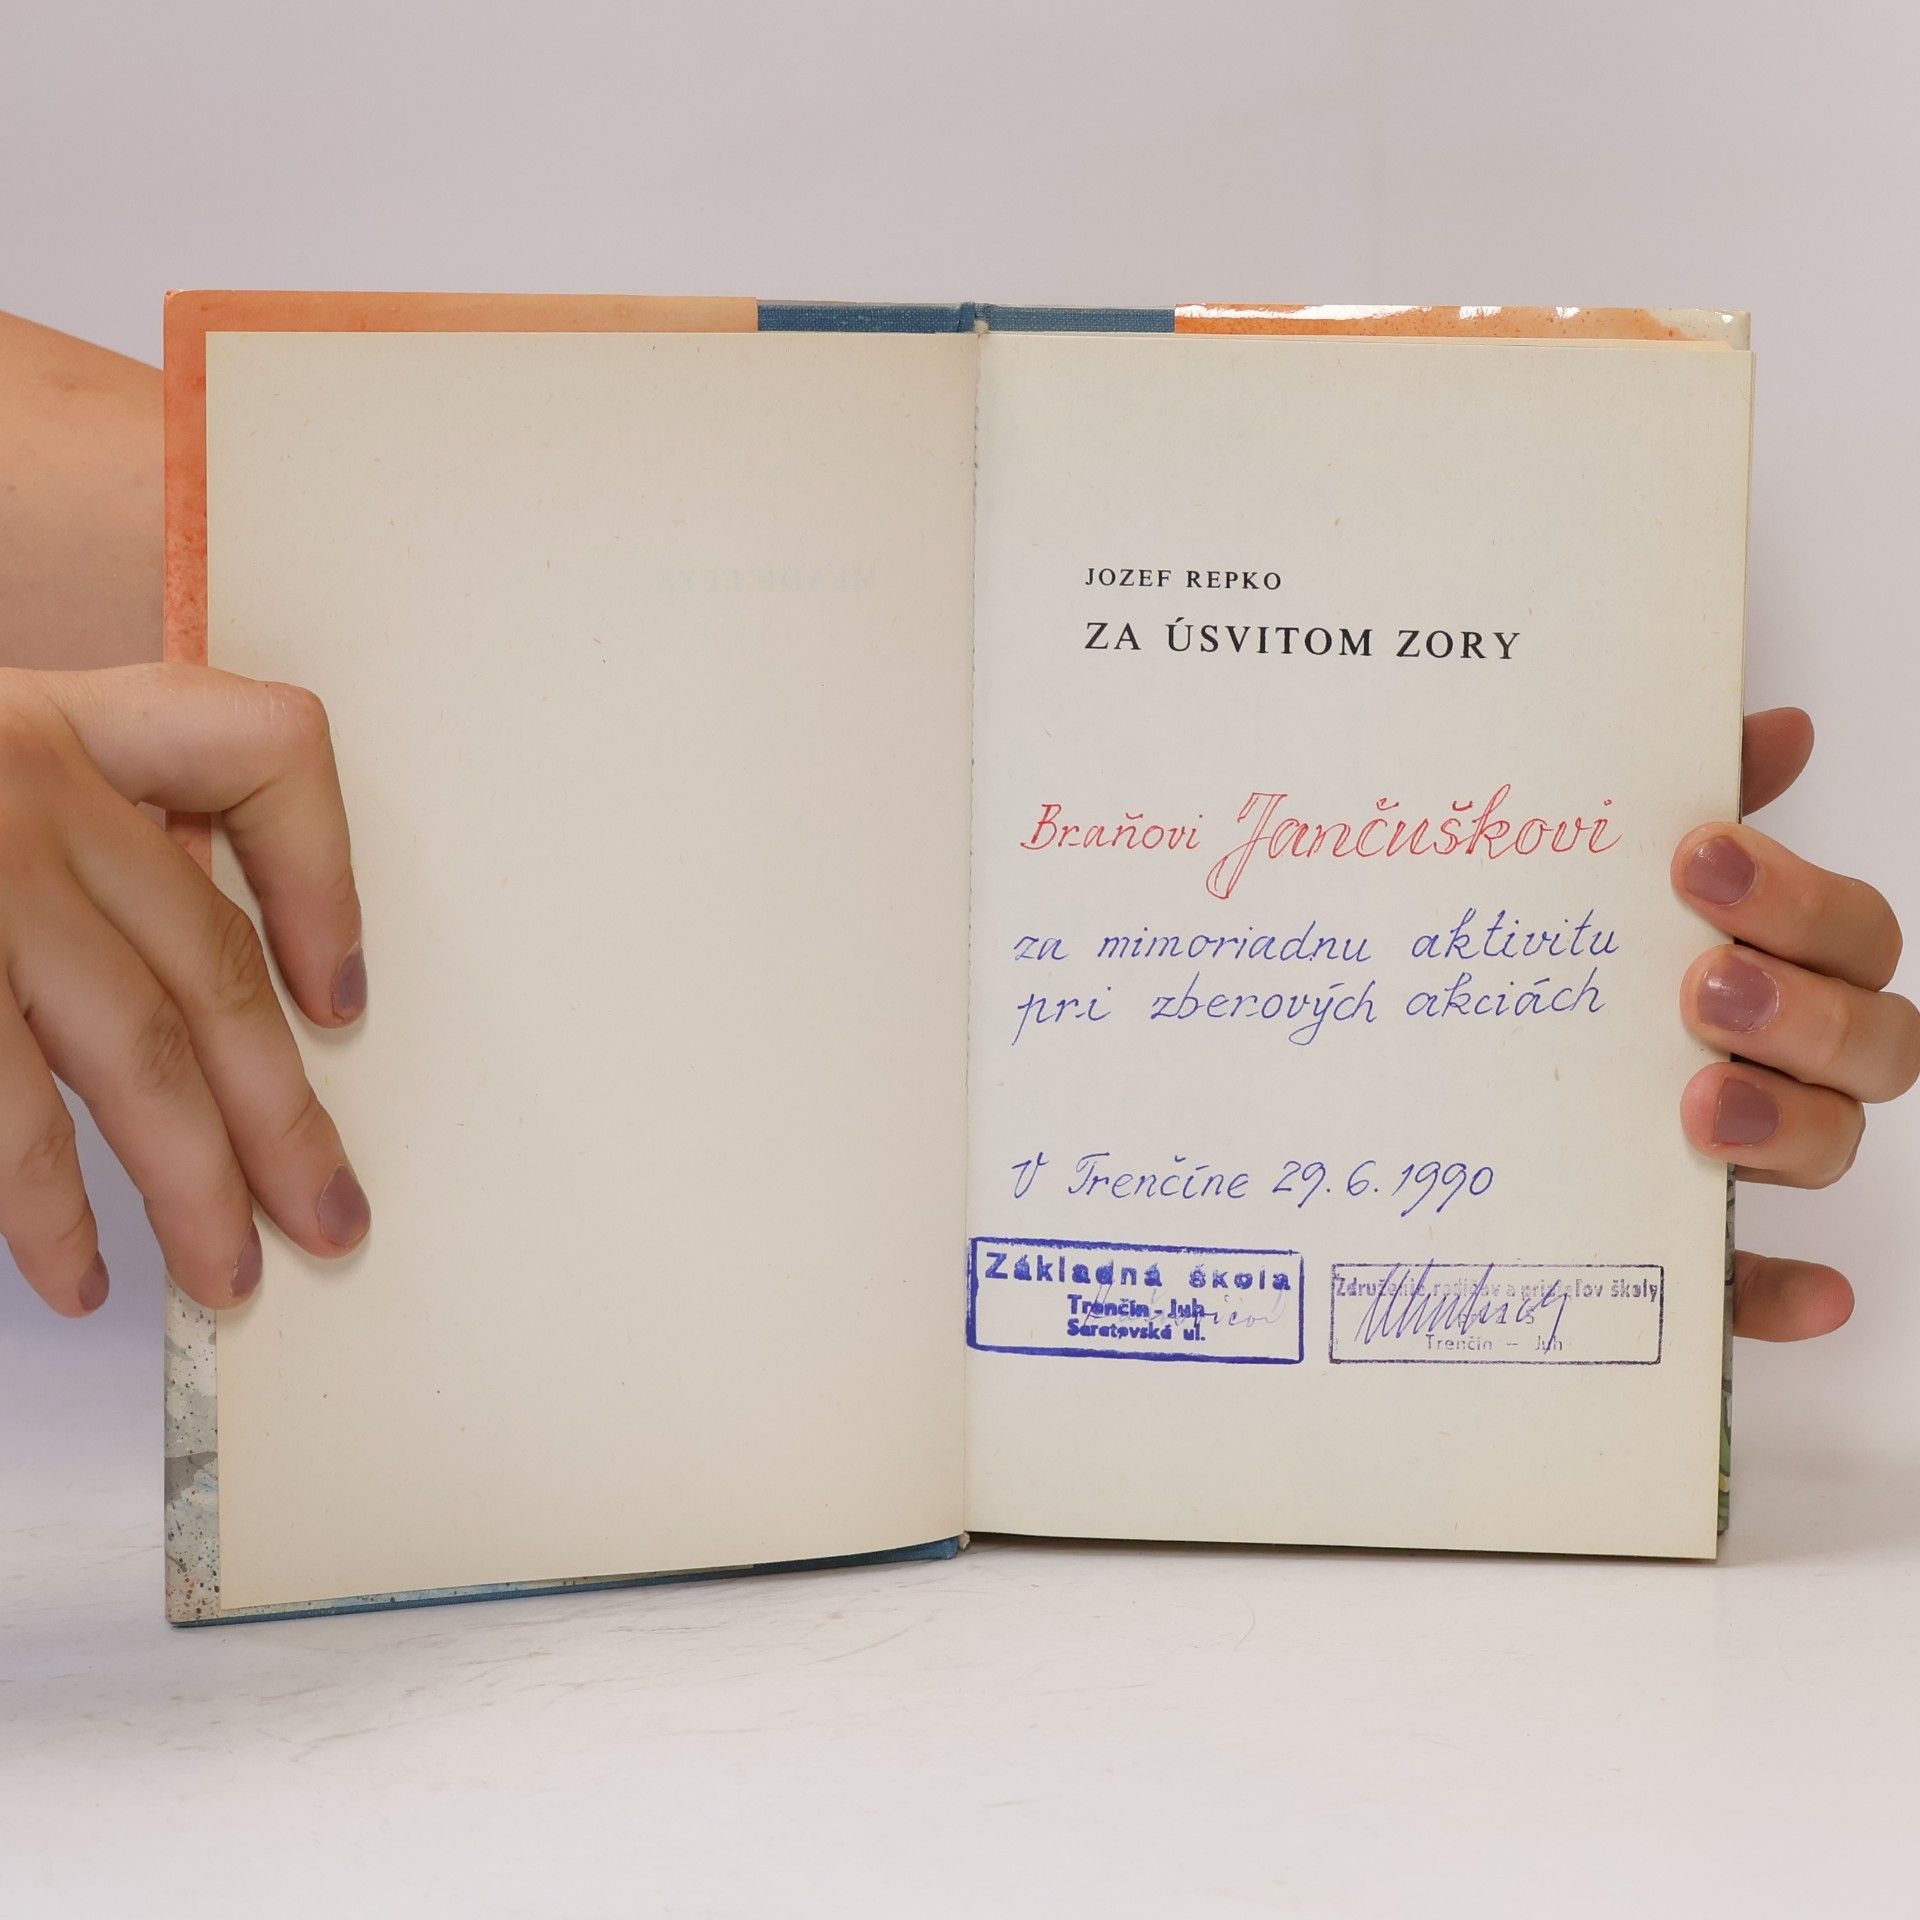 JOZEF REPKO
ZA ÚSVITOM ZORY
Braňovi Jančuškovi
za mimoriadnu aktivitu
pri zberových akciách
V Trenčíne 29.6.1990
Základná škola
Trenčín - Juh
Saratovská ul.
Združenie rodičov a priateľov školy
Trenčín – Juh